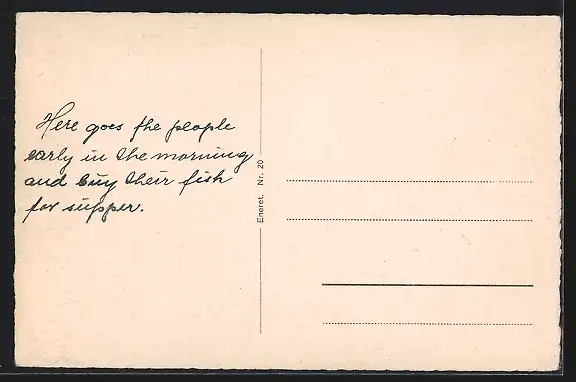 Here goes the people
early in the morning
and buy their fish
for supper.
Eneret. Nr. 20